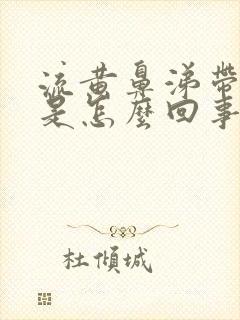 流黄鼻涕带
是怎麼回事
杜傾城